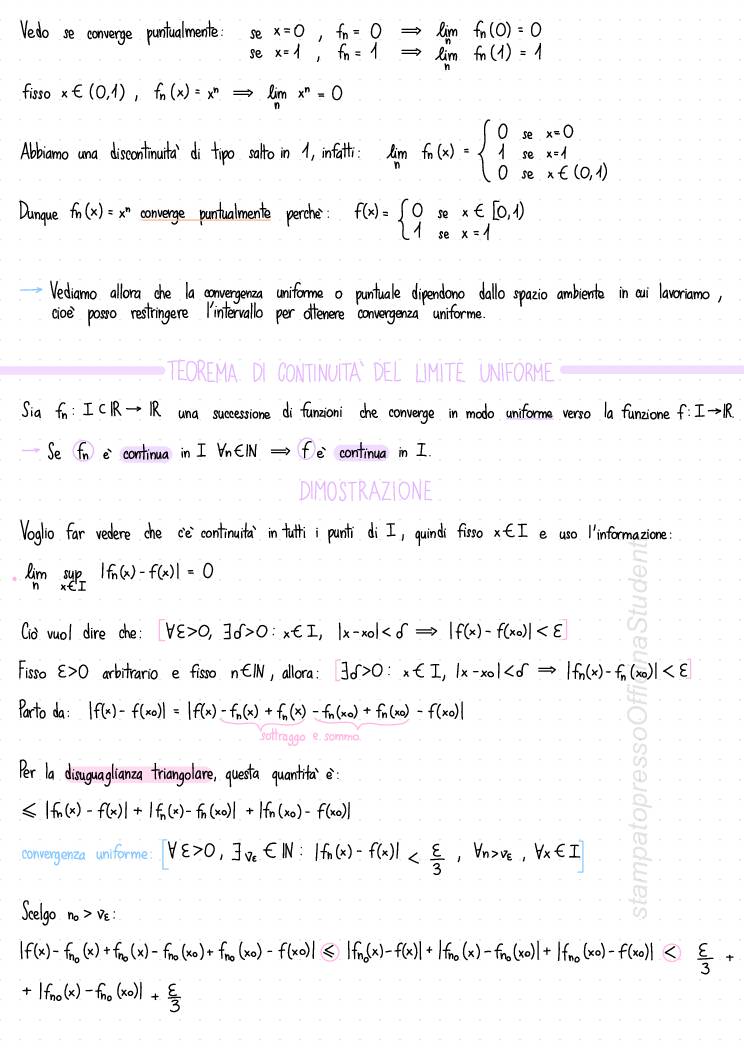 Vedo se converge puntualmente: se x=0 , fn = 0 ⟹ lim n fn(0) = 0
se x=1 , fn = 1 ⟹ lim n fn(1) = 1
fisso x∈(0,1) , fn(x) = xⁿ ⟹ lim n xⁿ = 0
Abbiamo una discontinuita' di tipo salto in 1, infatti: lim n fn(x) = { 0 se x=0
1 se x=1
0 se x∈(0,1)
Dunque fn(x) = xⁿ converge puntualmente perche': f(x) = { 0 se x∈[0,1)
1 se x=1
→ Vediamo allora che la convergenza uniforme o puntuale dipendono dallo spazio ambiente in cui lavoriamo ,
cioe' posso restringere l'intervallo per ottenere convergenza uniforme.
TEOREMA DI CONTINUITA' DEL LIMITE UNIFORME
Sia fn: I⊂ℝ→ℝ una successione di funzioni che converge in modo uniforme verso la funzione f: I→ℝ
→ Se fn e' continua in I ∀n∈ℕ ⟹ f e' continua in I.
DIMOSTRAZIONE
Voglio far vedere che c'e' continuita' in tutti i punti di I , quindi fisso x∈I e uso l'informazione:
• lim n sup x∈I |fn(x) - f(x)| = 0
Cio' vuol dire che: [∀ε>0, ∃δ>0: x∈I, |x-x₀|<δ ⟹ |f(x) - f(x₀)| < ε]
Fisso ε>0 arbitrario e fisso n∈ℕ, allora: [∃δ>0: x∈I, |x-x₀|<δ ⟹ |fn(x) - fn(x₀)| < ε]
Parto da: |f(x) - f(x₀)| = |f(x) - fn(x) + fn(x) - fn(x₀) + fn(x₀) - f(x₀)|
sottraggo e sommo
Per la disuguaglianza triangolare, questa quantita' e':
≤ |fn(x) - f(x)| + |fn(x) - fn(x₀)| + |fn(x₀) - f(x₀)|
convergenza uniforme: [∀ε>0, ∃νε∈ℕ: |fn(x) - f(x)| < ε/3 , ∀n>νε , ∀x∈I]
Scelgo n₀ > νε:
|f(x) - fn₀(x) + fn₀(x) - fn₀(x₀) + fn₀(x₀) - f(x₀)| ≤ |fn₀(x) - f(x)| + |fn₀(x) - fn₀(x₀)| + |fn₀(x₀) - f(x₀)| < ε/3 +
+ |fn₀(x) - fn₀(x₀)| + ε/3
stampatopressoOfficinaStudenti